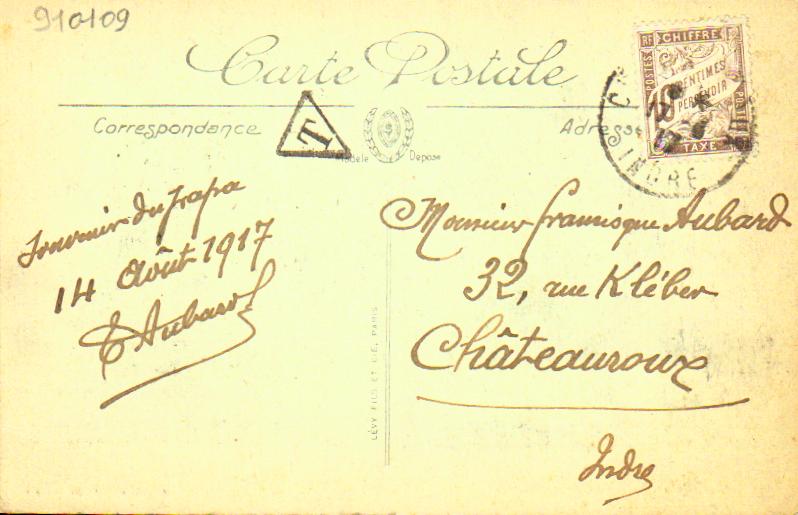 910109
Carte Postale
Correspondance
Adresse
T
Modèle Déposé
RF CHIFFRE
POSTES
CENTIMES
PERCEVOIR
TAXE
INDRE
Souvenir du papa
14 Août 1917
E Aubard
LÉVY FILS ET CIE, PARIS
Monsieur Francisque Aubard
32, rue Kléber
Châteauroux
Indre